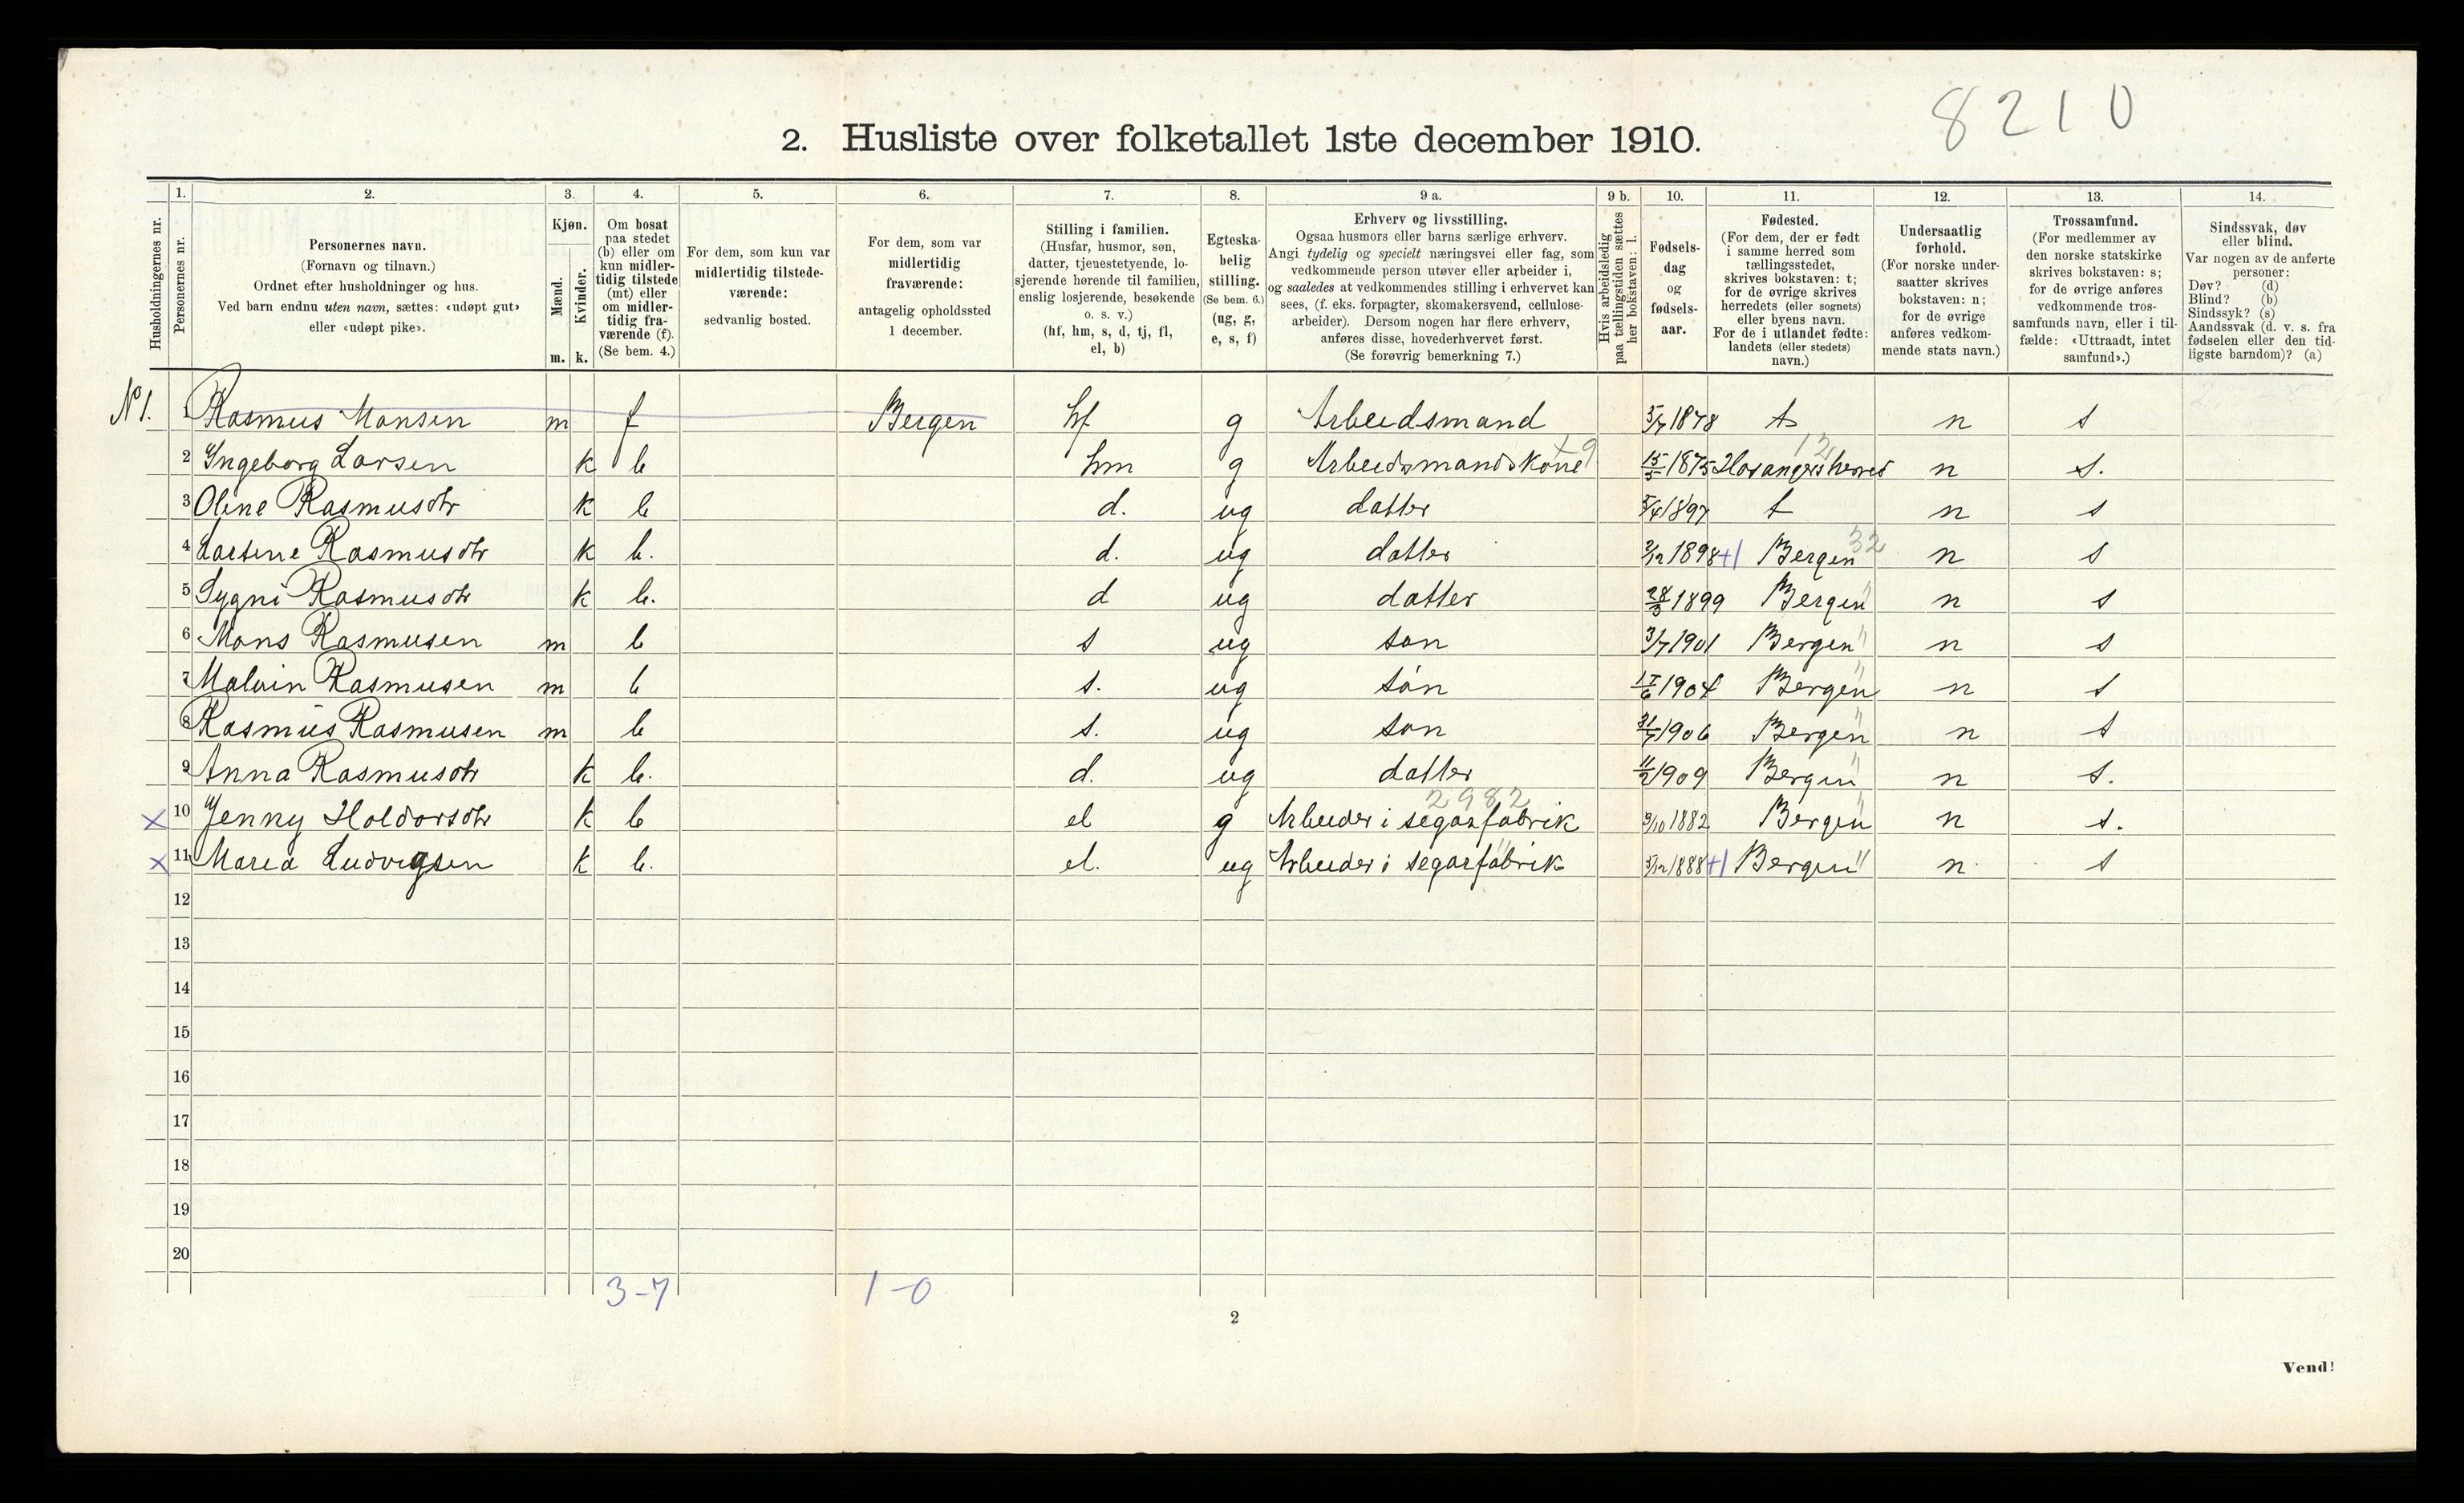 8210
2. Husliste over folketallet 1ste december 1910.
Husholdningernes nr.
1. Personernes nr.
2. Personernes navn.
(Fornavn og tilnavn.)
Ordnet efter husholdninger og hus.
Ved barn endnu uten navn, sættes: «udøpt gut»
eller «udøpt pike».
3. Kjøn.
Mænd. m.
Kvinder. k.
4. Om bosat
paa stedet
(b) eller om
kun midler-
tidig tilstede
(mt) eller
om midler-
tidig fra-
værende (f).
(Se bem. 4.)
5. For dem, som kun var
midlertidig tilstede-
værende:
sedvanlig bosted.
6. For dem, som var
midlertidig
fraværende:
antagelig opholdssted
1 december.
7. Stilling i familien.
(Husfar, husmor, søn,
datter, tjenestetyende, lo-
sjerende hørende til familien,
enslig losjerende, besøkende
o. s. v.)
(hf, hm, s, d, tj, fl,
el, b)
8. Egteska-
belig
stilling.
(Se bem. 6.)
(ug, g,
e, s, f)
9 a. Erhverv og livsstilling.
Ogsaa husmors eller barns særlige erhverv.
Angi tydelig og specielt næringsvei eller fag, som
vedkommende person utøver eller arbeider i,
og saaledes at vedkommendes stilling i erhvervet kan
sees, (f. eks. forpagter, skomakersvend, cellulose-
arbeider). Dersom nogen har flere erhverv,
anføres disse, hovederhvervet først.
(Se forøvrig bemerkning 7.)
9 b. Hvis arbeidsledig
paa tællingstiden sættes
her bokstaven: l.
10. Fødsels-
dag
og
fødsels-
aar.
11. Fødested.
(For dem, der er født
i samme herred som
tællingsstedet,
skrives bokstaven: t;
for de øvrige skrives
herredets (eller sognets)
eller byens navn.
For de i utlandet fødte:
landets (eller stedets)
navn.)
12. Undersaatlig
forhold.
(For norske under-
saatter skrives
bokstaven: n;
for de øvrige
anføres vedkom-
mende stats navn.)
13. Trossamfund.
(For medlemmer av
den norske statskirke
skrives bokstaven: s;
for de øvrige anføres
vedkommende tros-
samfunds navn, eller i til-
fælde: «Uttraadt, intet
samfund».)
14. Sindssvak, døv
eller blind.
Var nogen av de anførte
personer:
Døv? (d)
Blind? (b)
Sindssyk? (s)
Aandssvak (d. v. s. fra
fødselen eller den tid-
ligste barndom)? (a)
No 1. 1 Rasmus Monsen m f Bergen hf g Arbeidsmand 5/7 1878 t n s
2 Ingeborg Larsen k b hm g Arbeidsmandskone 15/5 1875 n s.
3 Oline Rasmusdtr k b d. ug datter 5/4 1897 t n s
4 Rasmusdtr k b. d. ug datter 2/12 1898 +1 Bergen 32 n s
5 Sygni Rasmusdtr k b. d ug datter 28/3 1899 Bergen " n s
6 Mons Rasmusen m b s ug søn 3/7 1901 Bergen " n s
7 Malvin Rasmusen m b s. ug søn 1904 Bergen " n s
8 Rasmus Rasmusen m b s. ug søn 1906 Bergen " n s
9 Anna Rasmusdtr k b. d. ug datter 11/2 1909 Bergen " n s.
2982
x 10 Jenny Holdorsdtr k b el g Arbeider i segarfabrik 9/10 1882 Bergen " n s.
x 11 Maria Ludvigsen k b. el. ug Arbeider i segarfabrik " 5/12 1888 +1 Bergen " n. s
12
13
14
15
16
17
18
19
20
3-7 1-0
2
Vend!